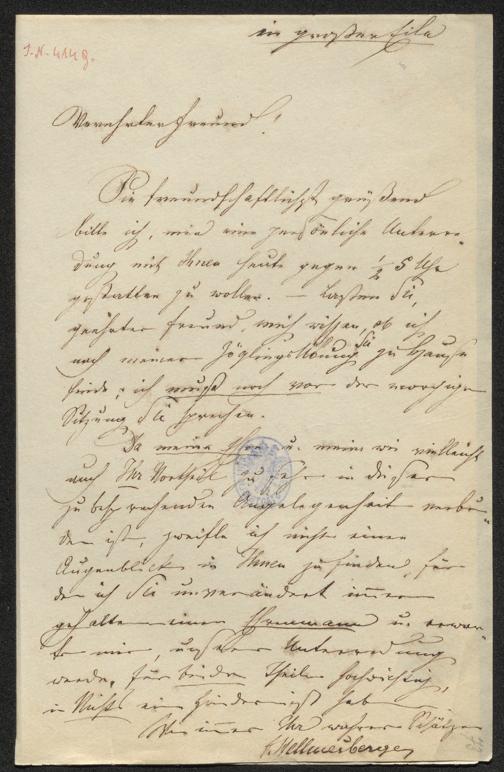 in großer Eile
I.N. 4148.
Verehrter Freund!
Sie freundschaftlichst grüßend
bitte ich, mir eine persönliche Unterre-
dung mit Ihnen heute gegen ½ 5 Uhr
gestatten zu wollen. – Lassen Sie,
geehrter Freund, mich wissen, ob ich
nach meiner Zöglingsübung Sie zu Hause
finde; ich muß noch vor der morgigen
Sitzung Sie sprechen.
Da meine u. meine wie vielleicht
auch Ihr Vortheil zu sehr in dieser
zu besprechenden Angelegenheit verbun-
den ist, zweifle ich nicht einen
Augenblick in Ihnen zu finden, für
den ich Sie unverändert immer
gehalten einen Ehrenmann u. erwar-
te mir, unsere Unterredung
werde, für beide Theile hochwichtig,
in Nichts ein Hinderniß haben
Wie immer Ihr wahrer Schätzer
J. Hellmesberger